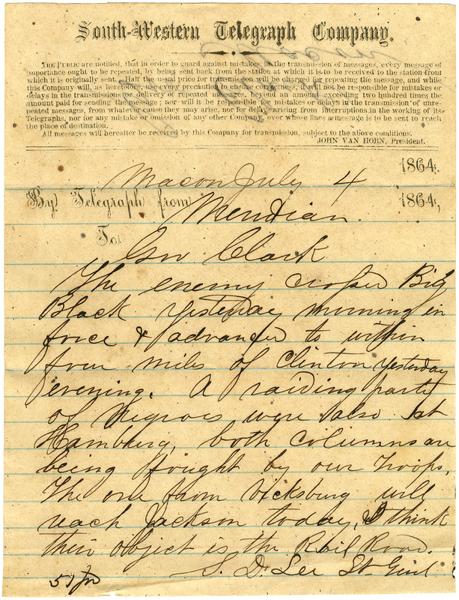 South-Western Telegraph Company.
THE PUBLIC are notified, that in order to guard against mistakes in the transmission of messages, every message of
importance ought to be repeated, by being sent back from the station at which it is to be received to the station from
which it is originally sent. Half the usual price for transmission will be charged for repeating the message, and while
this Company will, as heretofore, use every precaution to ensure correctness, it will not be responsible for mistakes or
delays in the transmission or delivery of repeated messages, beyond an amount exceeding two hundred times the
amount paid for sending the message; nor will it be responsible for mistakes or delays in the transmission of unre-
peated messages, from whatever cause they may arise, nor for delays arising from interruptions in the working of its
Telegraphs, nor for any mistake or omission of any other Company over whose lines a message is to be sent to reach
the place of destination.
All messages will hereafter be received by this Company for transmission, subject to the above conditions.
JOHN VAN HORN, President.
Macon July 4 1864.
By Telegraph from Meridian. 1864,
To Gov Clark
The enemy crossed Big
Black yesterday morning in
force & advanced to within
four miles of Clinton yesterday
evening. A raiding party
of Negroes were also at
Hamburg, both columns are
being fought by our troops.
The one from Vicksburg will
reach Jackson today, I think
their object is the Rail Road.
S. D. Lee Lt Genl